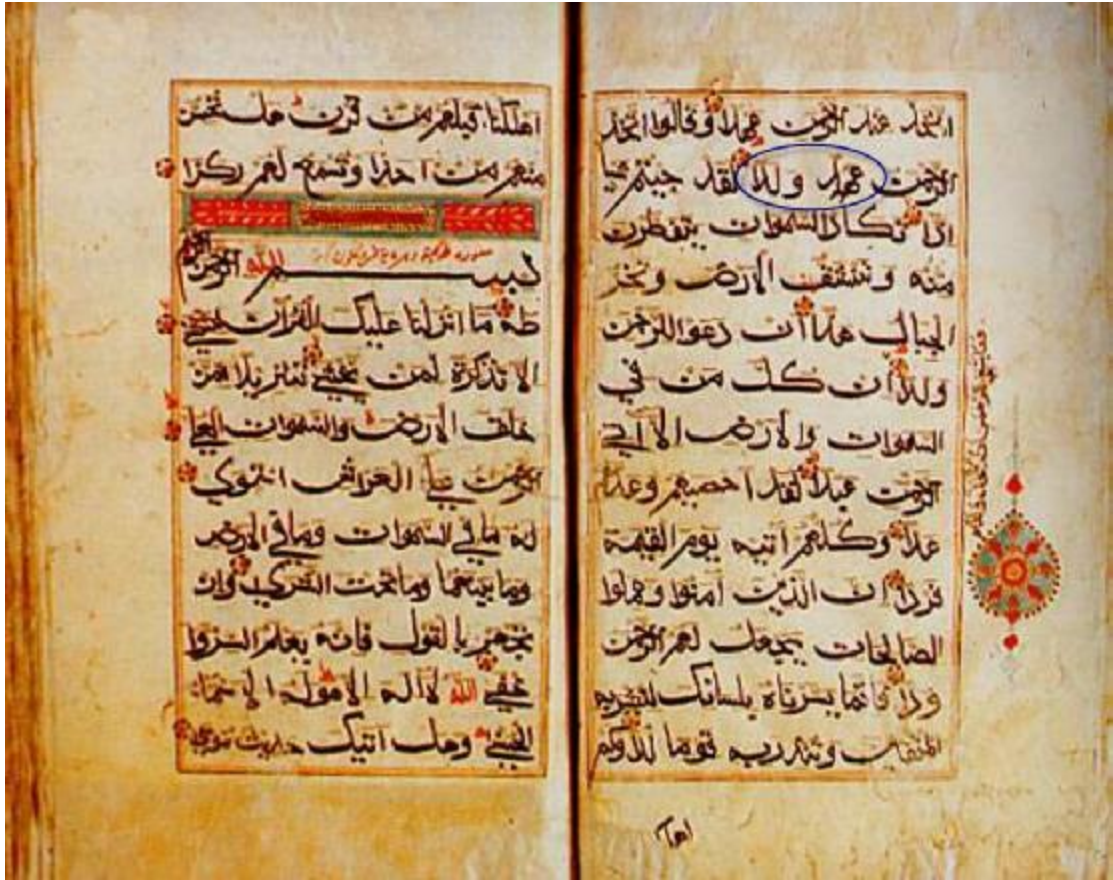 اتخذ عند الرحمن عهدا وقالوا اتخذ
الرحمن عهد ولدا لقد جيتم شيا
ادا تكاد السموات يتفطرن
منه وتنشق الارض وتخر
الجبال هدا ان دعوا للرحمن
ولدا ان كل من في
السموات والارض الا اتي
الرحمن عبدا لقد احصيهم وعدهم
عدا وكلهم اتيه يوم القيمة
فردا ان الذين امنوا وعملوا
الصالحات سيجعل لهم الرحمن
ودا فانما يسرناه بلسانك لتبشر به
المتقين وتنذر به قوما لدا وكم
اهلكنا قبلهم من قرن هل تحس
منهم من احد او تسمع لهم ركزا
بسم الله الرحمن الرحيم
طه ما انزلنا عليك القران لتشقي
الا تذكرة لمن يخشي تنزيلا ممن
خلق الارض والسموات العلي
الرحمن علي العرش استوي
له ما في السموات وما في الارض
وما بينهما وما تحت الثري وان
تجهر بالقول فانه يعلم السر وا
خفي الله لا اله الا هو له الاسماء
الحسني وهل اتيك حديث موسي